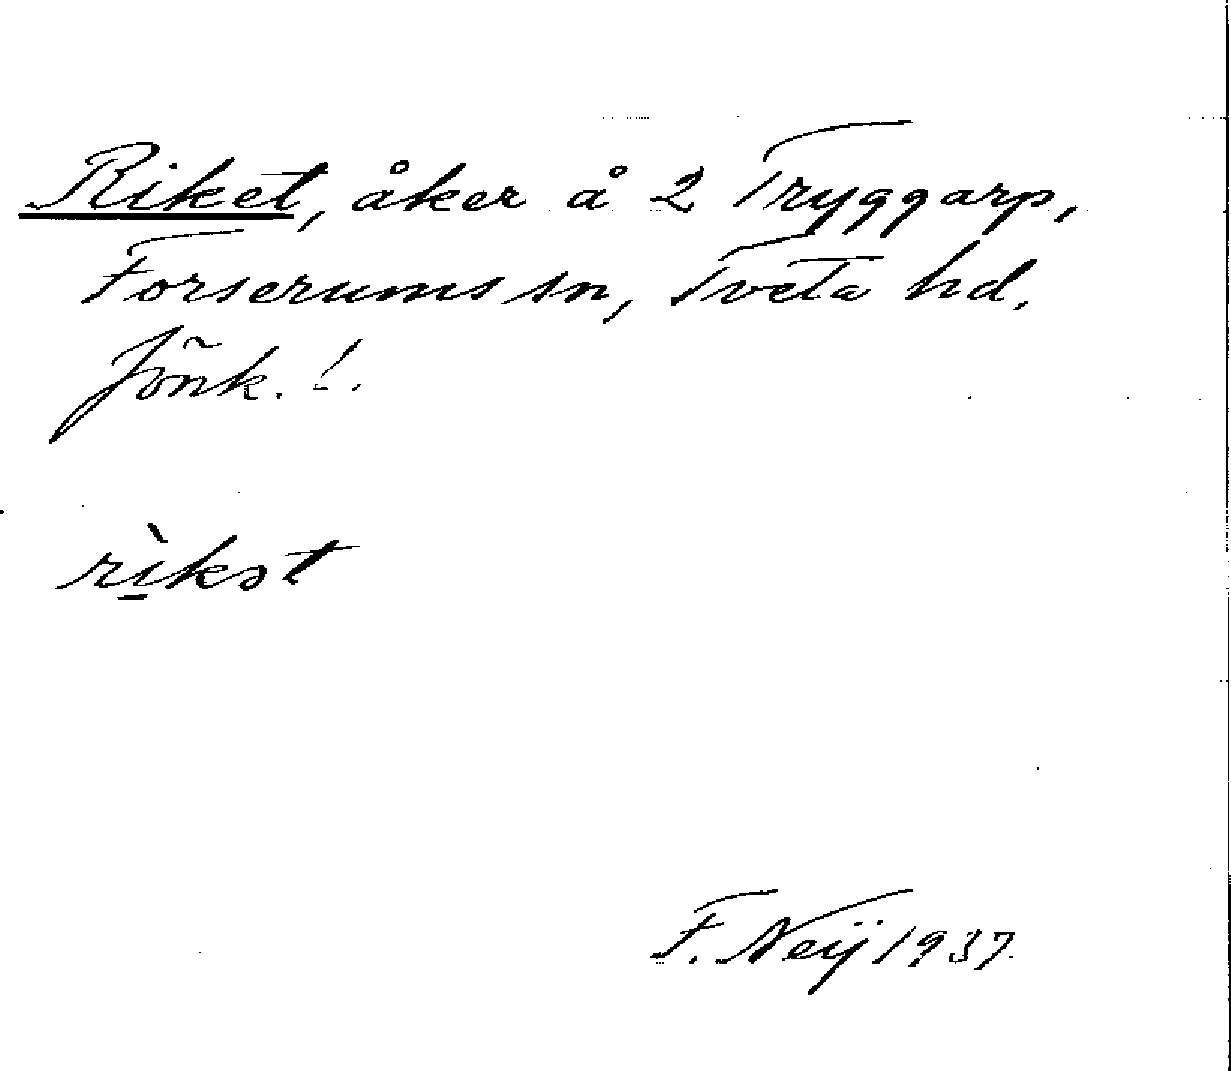 Riket, åker å 2 Tryggarp,
Forserums sn, Tveta hd.
Jönk. l.
rı̣̀kət
F. Neij 1937.